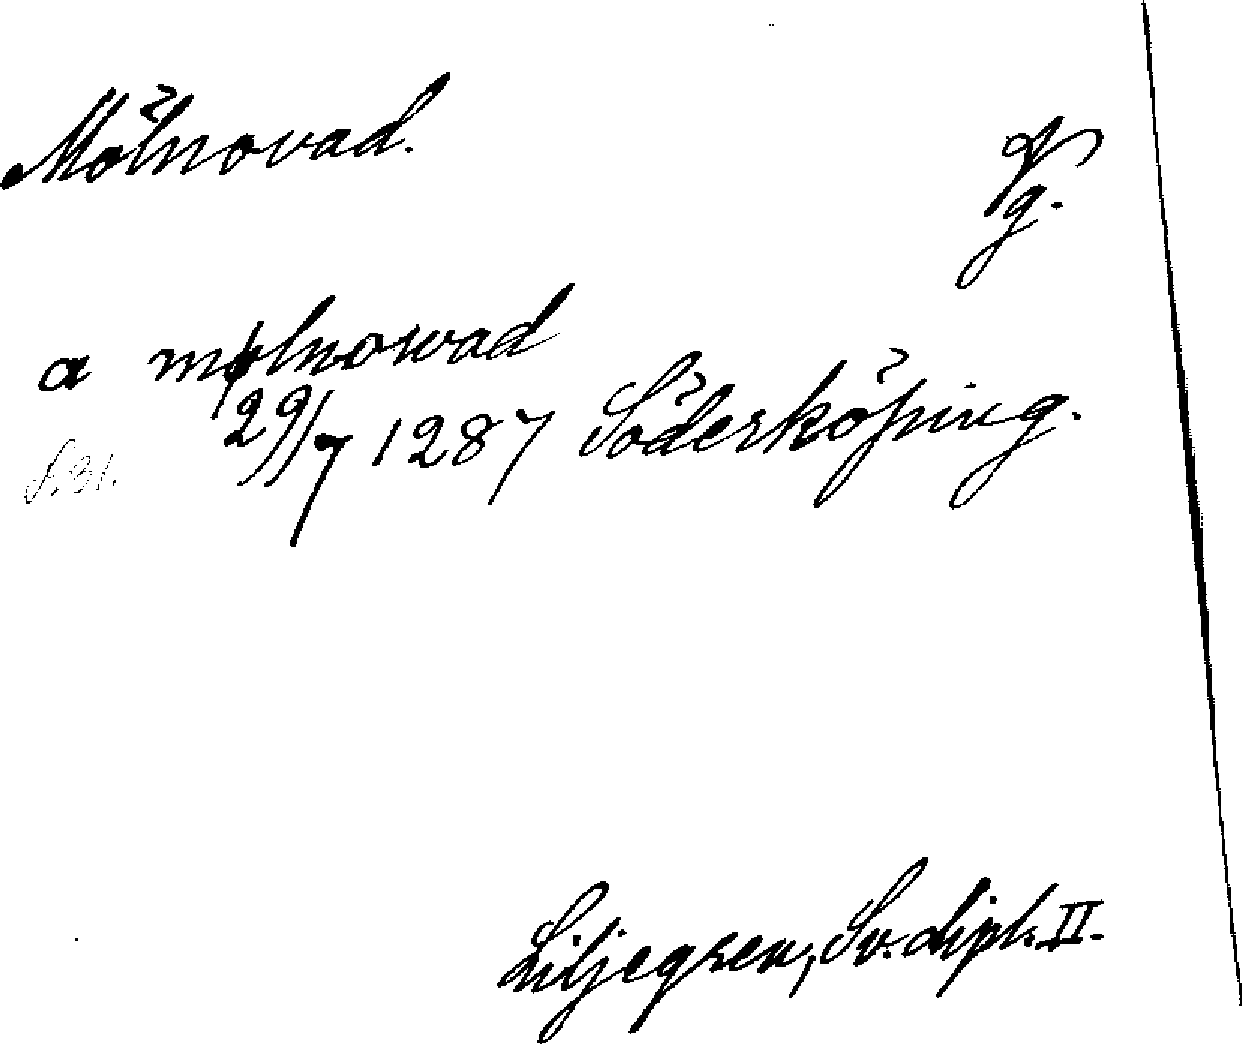 Mölnovad.
Ög.
a mølnowad
29/7 1287 Söderköping.
S. 31.
Liljegren, Sv. dipl. II.